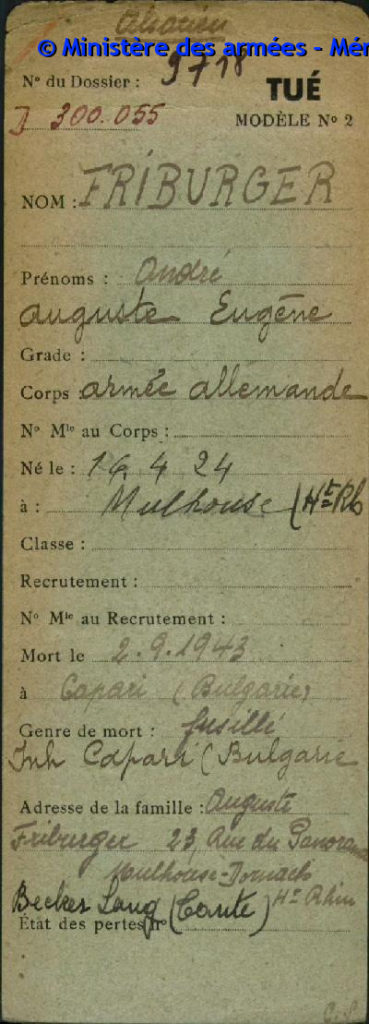 Alsacien
© Ministère des armées - Mé
N° du Dossier : 9718
TUÉ
J 300.055
MODÈLE N° 2
NOM : FRIBURGER
Prénoms : André
Auguste Eugène
Grade :
Corps armée allemande
N° Mle au Corps :
Né le : 16 4 24
à : Mulhouse (Ht Rh
Classe :
Recrutement :
N° Mle au Recrutement :
Mort le 2.9.1943
à Capari (Bulgarie)
Genre de mort : fusillé
Inh Capari (Bulgarie
Adresse de la famille : Auguste
Friburger 23, Rue du Panorama
Mulhouse-Dornach
Ht Rhin
État des pertes n°